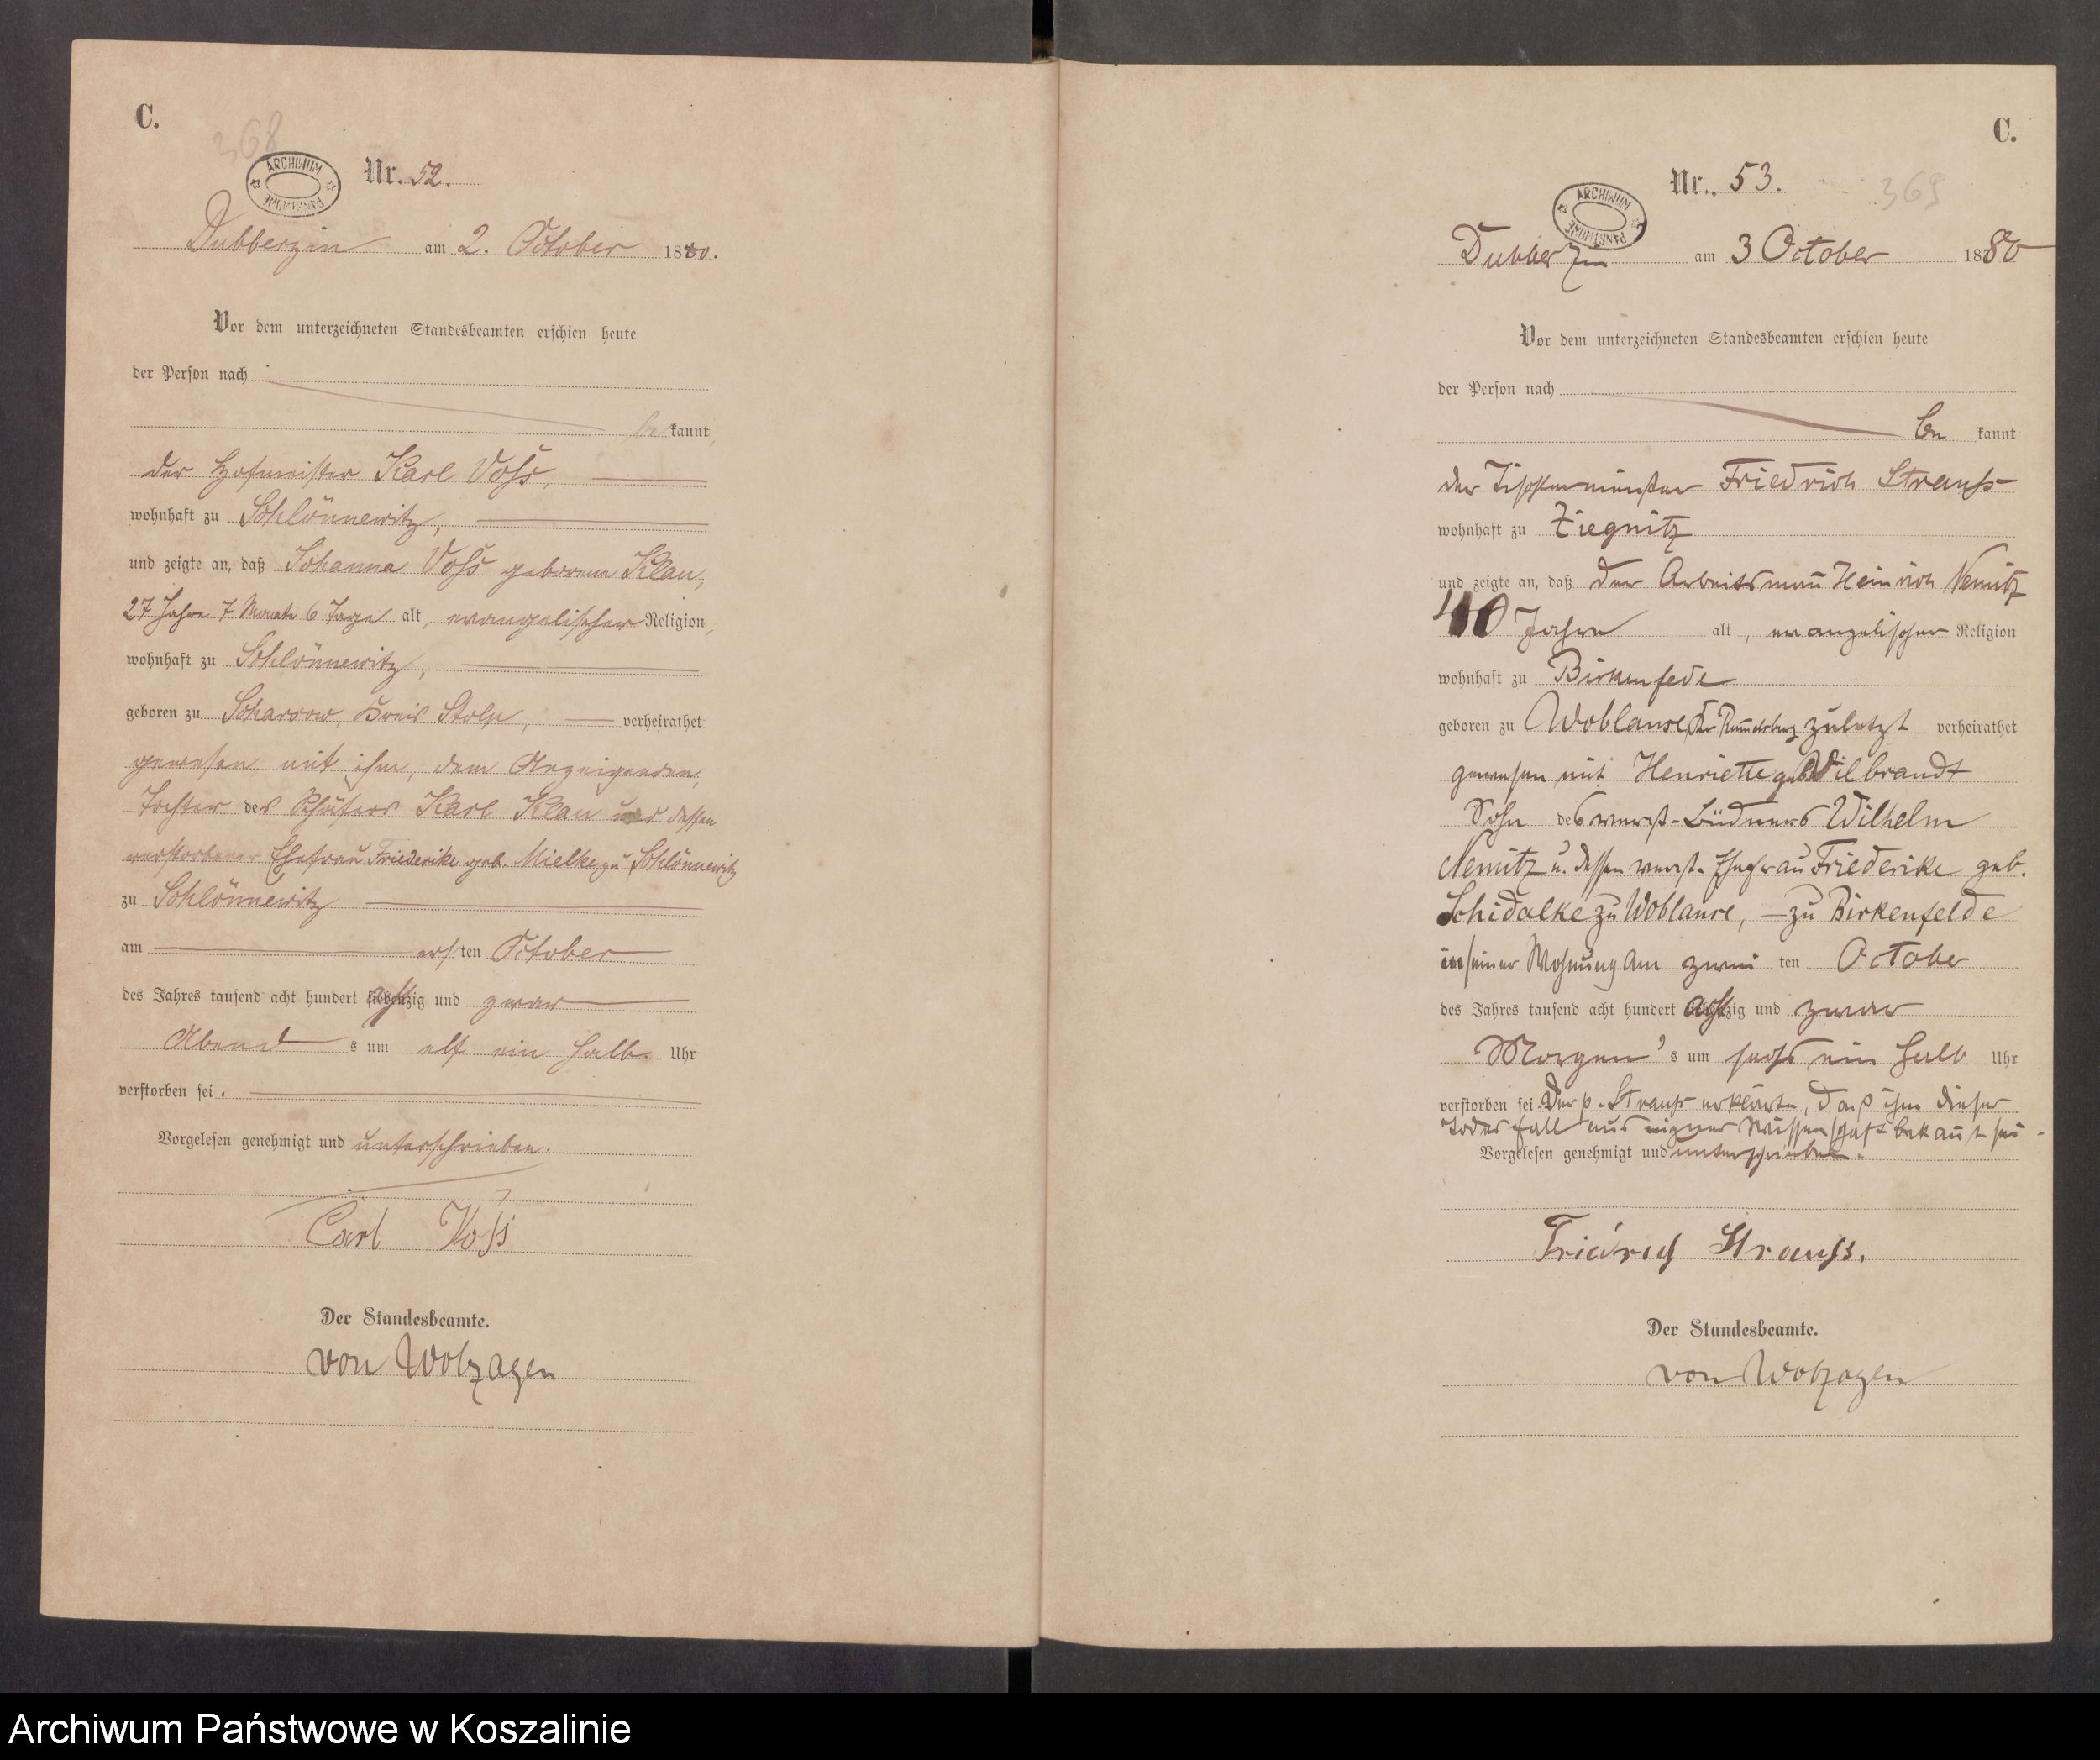 C.
368
ARCHIWUM PAŃSTWOWE
Nr. 52.
Dubberzin am 2. October 1880.
Vor dem unterzeichneten Standesbeamten erschien heute
der Person nach
be kannt,
der Hofmeister Karl Voß,
wohnhaft zu Schlönnewitz,
und zeigte an, daß Johanna Voß geborene Klau,
27 Jahre 7 Monate 6 Tage alt, evangelischer Religion,
wohnhaft zu Schlönnewitz,
geboren zu Scharsow, Kreis Stolp, verheirathet
gewesen mit ihm, dem Anzeigenden,
Tochter des Schäfers Karl Klau und dessen
verstorbener Ehefrau Friederike geb. Mielke zu Schlönnewitz
zu Schlönnewitz
am ersten October
des Jahres tausend acht hundert achtzig und zwar
Abend s um elf ein halb Uhr
verstorben sei.
Vorgelesen genehmigt und unterschrieben.
Carl Voß
Der Standesbeamte.
von Wolzogen
C.
Nr. 53.
369
ARCHIWUM PAŃSTWOWE
Dubberzin am 3 October 1880
Vor dem unterzeichneten Standesbeamten erschien heute
der Person nach
be kannt
der Tischlermeister Friedrich Strauß
wohnhaft zu Ziegnitz
und zeigte an, daß der Arbeitsmann Heinrich Nemitz
40 Jahre alt, evangelischer Religion
wohnhaft zu Birkenfede
geboren zu Woblanse, Kr Rummelsburg zuletzt verheirathet
gewesen mit Henriette geb. Wilbrandt
Sohn des verst. Büdners Wilhelm
Nemitz u. dessen verst. Ehefrau Friederike geb.
Schidalke zu Woblanse, — zu Birkenfelde
in seiner Wohnung am zwei ten October
des Jahres tausend acht hundert achtzig und zwar
Morgen's um sechs ein halb Uhr
verstorben sei. Der p. Strauß erklärte, daß ihm dieser
Todesfall aus eigner Wissenschaft bekannt sei.
Vorgelesen genehmigt und unterschrieben.
Friedrich Strauß.
Der Standesbeamte.
von Wolzogen
Archiwum Państwowe w Koszalinie